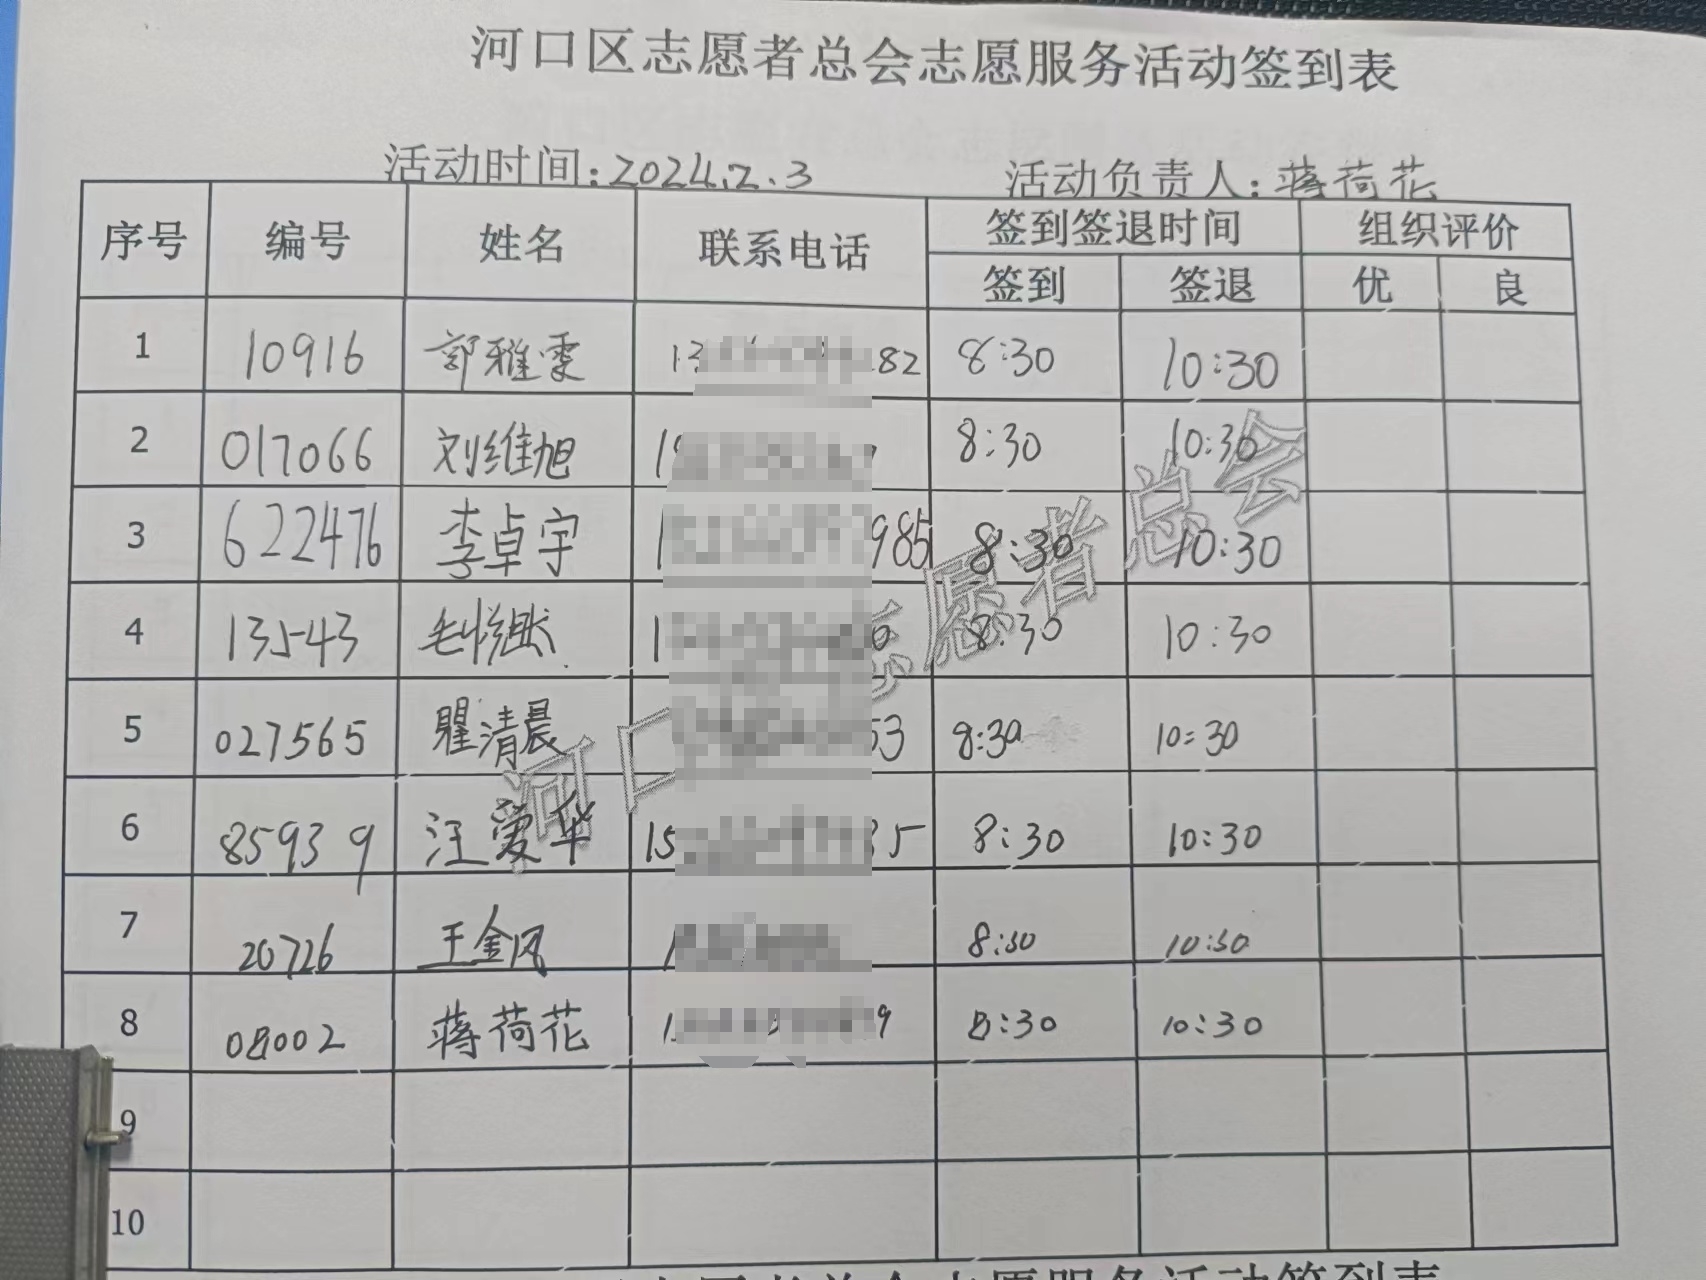 河口区志愿者总会志愿服务活动签到表
活动时间:2024.2.3 活动负责人:蒋荷花
序号 编号 姓名 联系电话 签到签退时间 组织评价
签到 签退 优 良
1 10916 郭雅雯 13 82 8:30 10:30
2 017066 刘维旭 8:30 10:30
3 622476 李卓宇 1 985 8:30 10:30
4 13543 1 0 8:30 10:30
5 027565 瞿清晨 53 8:30 10:30
6 85939 汪爱华 15 35 8:30 10:30
7 20726 王金凤 1 8:30 10:30
8 08002 蒋荷花 1 9 8:30 10:30
9
10
河口区志愿者总会
志愿者总会志愿服务活动签到表